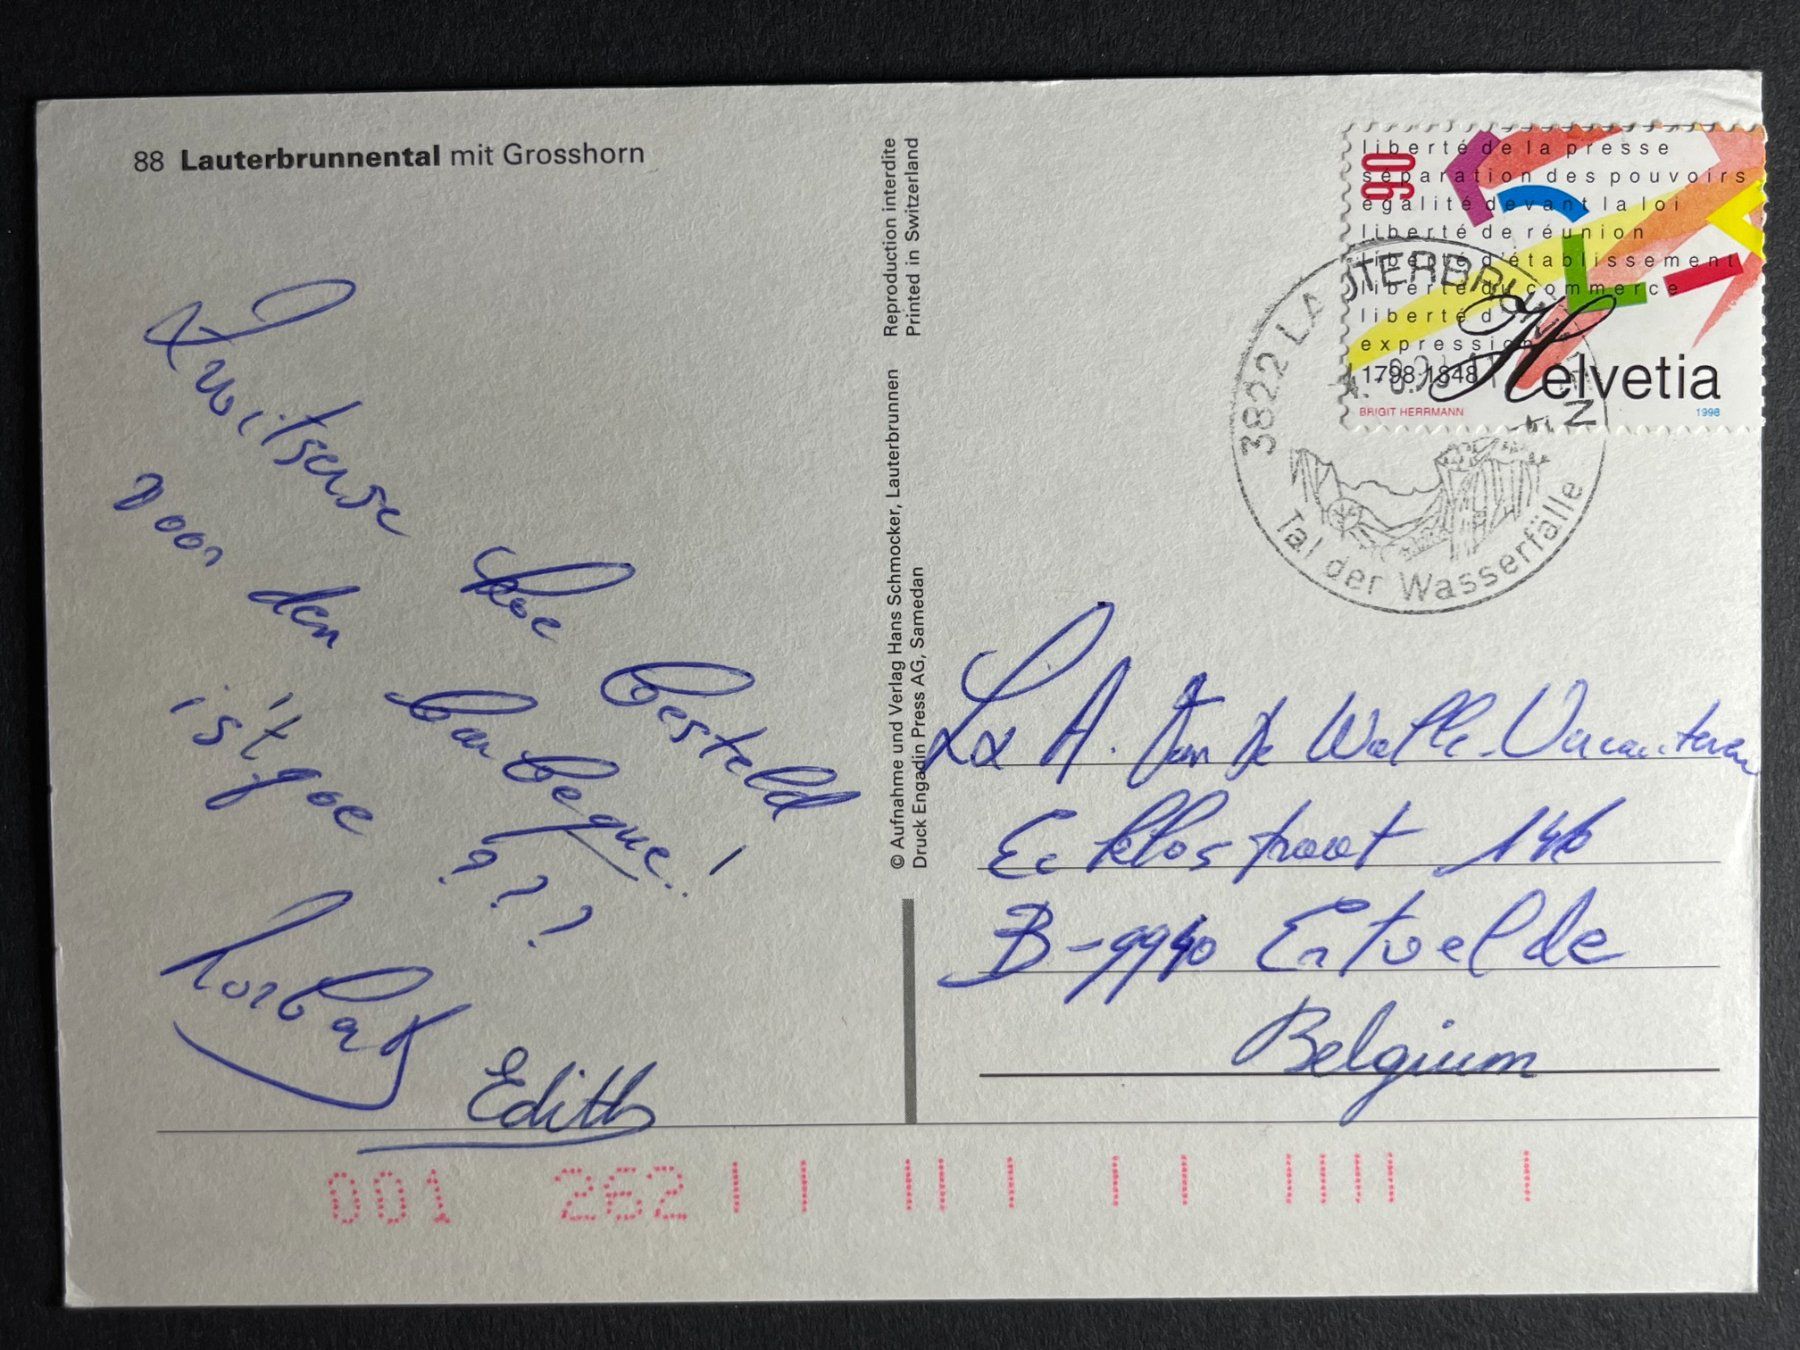 88 Lauterbrunnental mit Grosshorn
Zwitserse koe besteld
voor den barbeque!!
is 't goe ???
Norbert
Edith
© Aufnahme und Verlag Hans Schmocker, Lauterbrunnen Reproduction interdite
Druck Engadin Press AG, Samedan Printed in Switzerland
90
liberté de la presse
séparation des pouvoirs
égalité devant la loi
liberté de réunion
liberté d'établissement
liberté du commerce
liberté d'
expression
1798·1848
Helvetia
BRIGIT HERRMANN 1998
3822 LAUTERBRUNNEN
Tal der Wasserfälle
A. Van De Walle-Vercauteren
Eeklostraat 146
B-9940 Ertvelde
Belgium
001 262